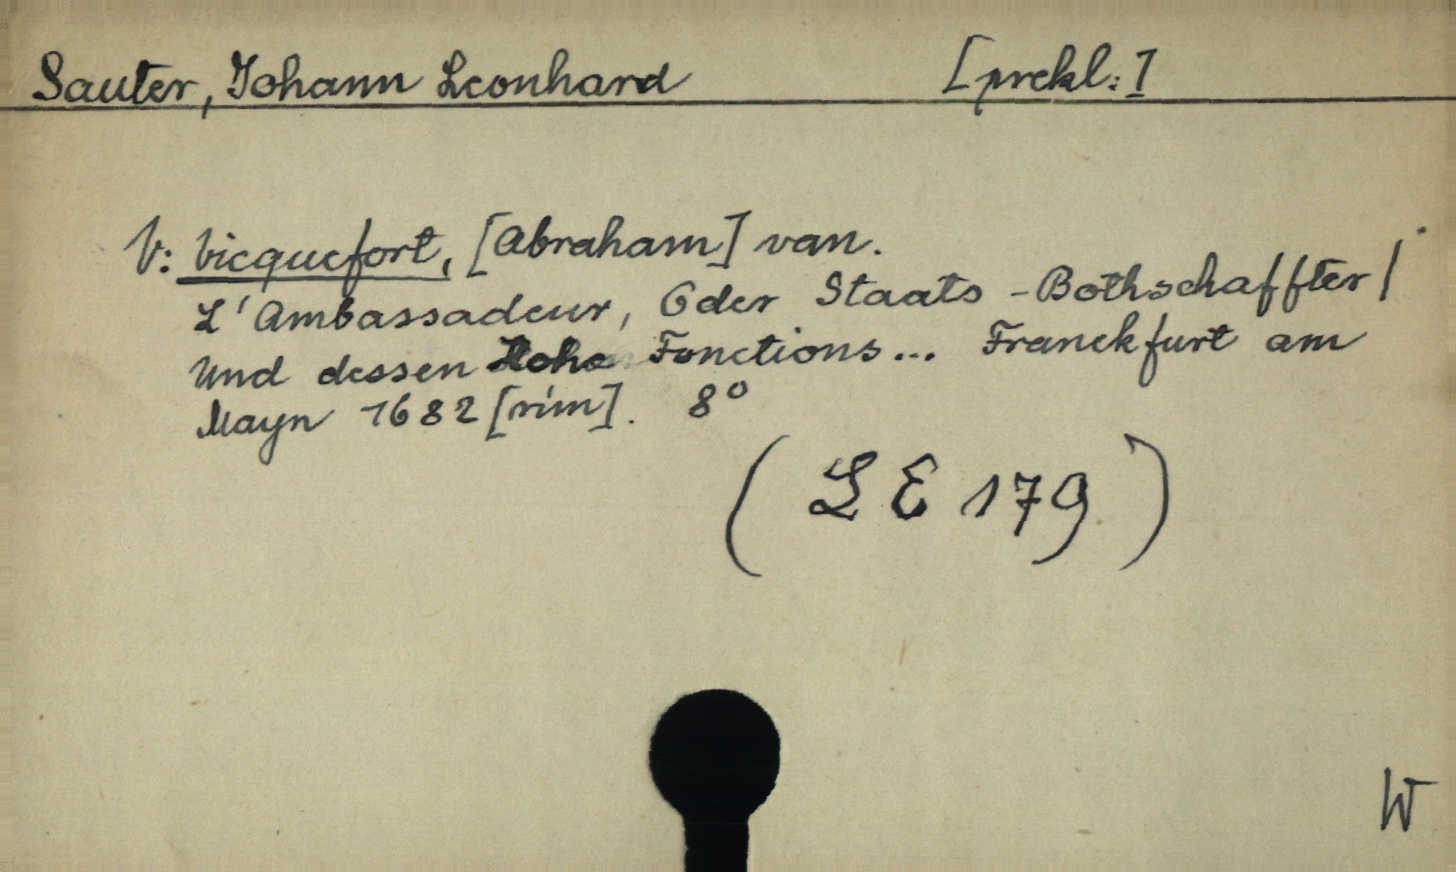 Sauter, Johann Leonhard [prekl.:]
V: Vicquefort, [Abraham] van.
L'Ambassadeur, Oder Staats-Bothschaffter/
Und dessen Hohe Fonctions... Franckfurt am
Mayn 1682 [rim]. 8°
(LE 179)
W